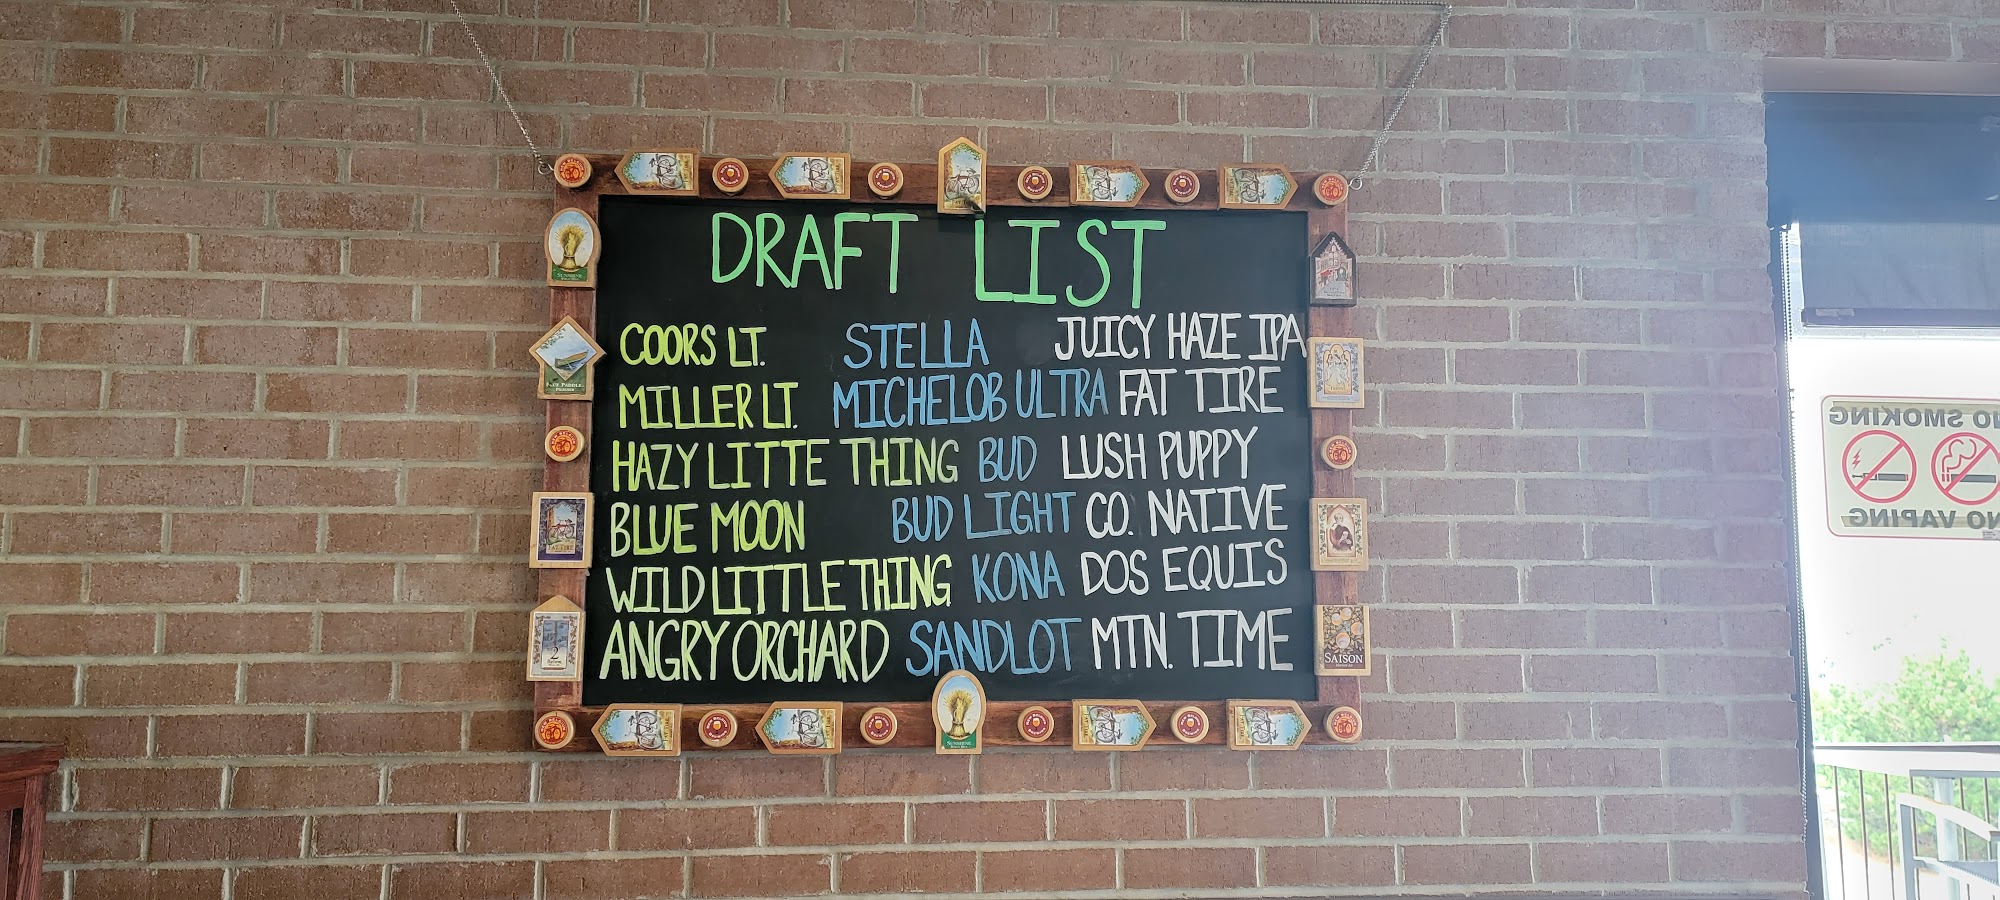 DRAFT LIST
COORS LT. STELLA JUICY HAZE IPA
MILLER LT. MICHELOB ULTRA FAT TIRE
HAZY LITTE THING BUD LUSH PUPPY
BLUE MOON BUD LIGHT CO. NATIVE
WILD LITTLE THING KONA DOS EQUIS
ANGRY ORCHARD SANDLOT MTN. TIME
SUNSHINE
FAT TIRE
2
SAISON
SUNSHINE
NO SMOKING
NO VAPING